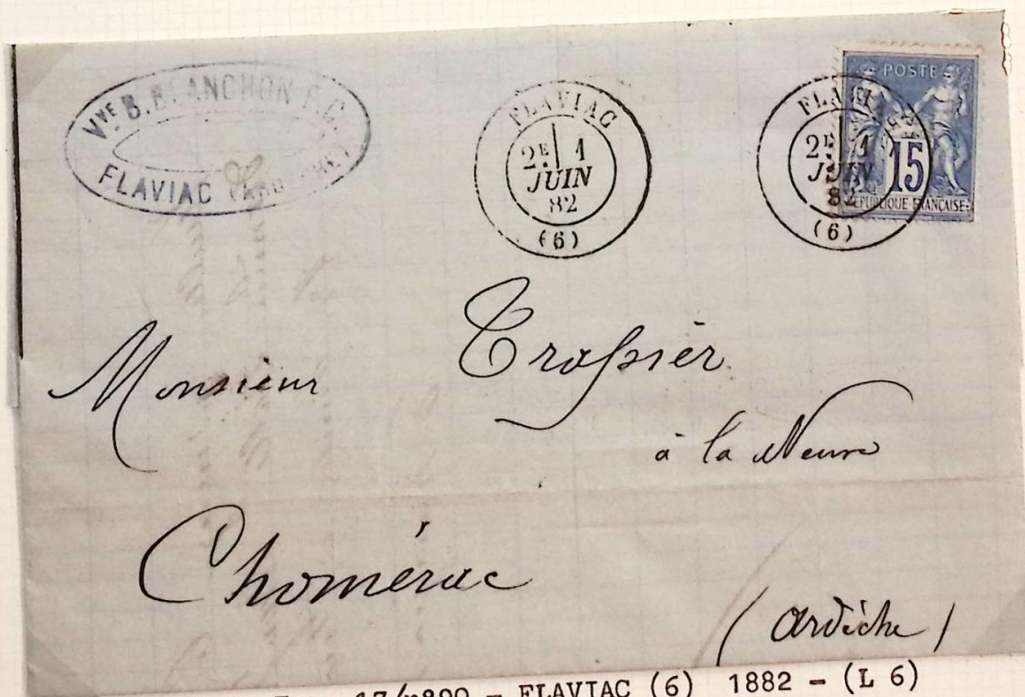 Vve B. BLANCHON F.C.
FLAVIAC
FLAVIAC
2E 1
JUIN
82
(6)
FLAVIAC
2E 1
JUIN
82
(6)
POSTE
15
REPUBLIQUE FRANÇAISE
Monsieur Trassier
à la Neuve
Chomérac
(Ardèche)
FLAVIAC (6) 1882 - (L 6)